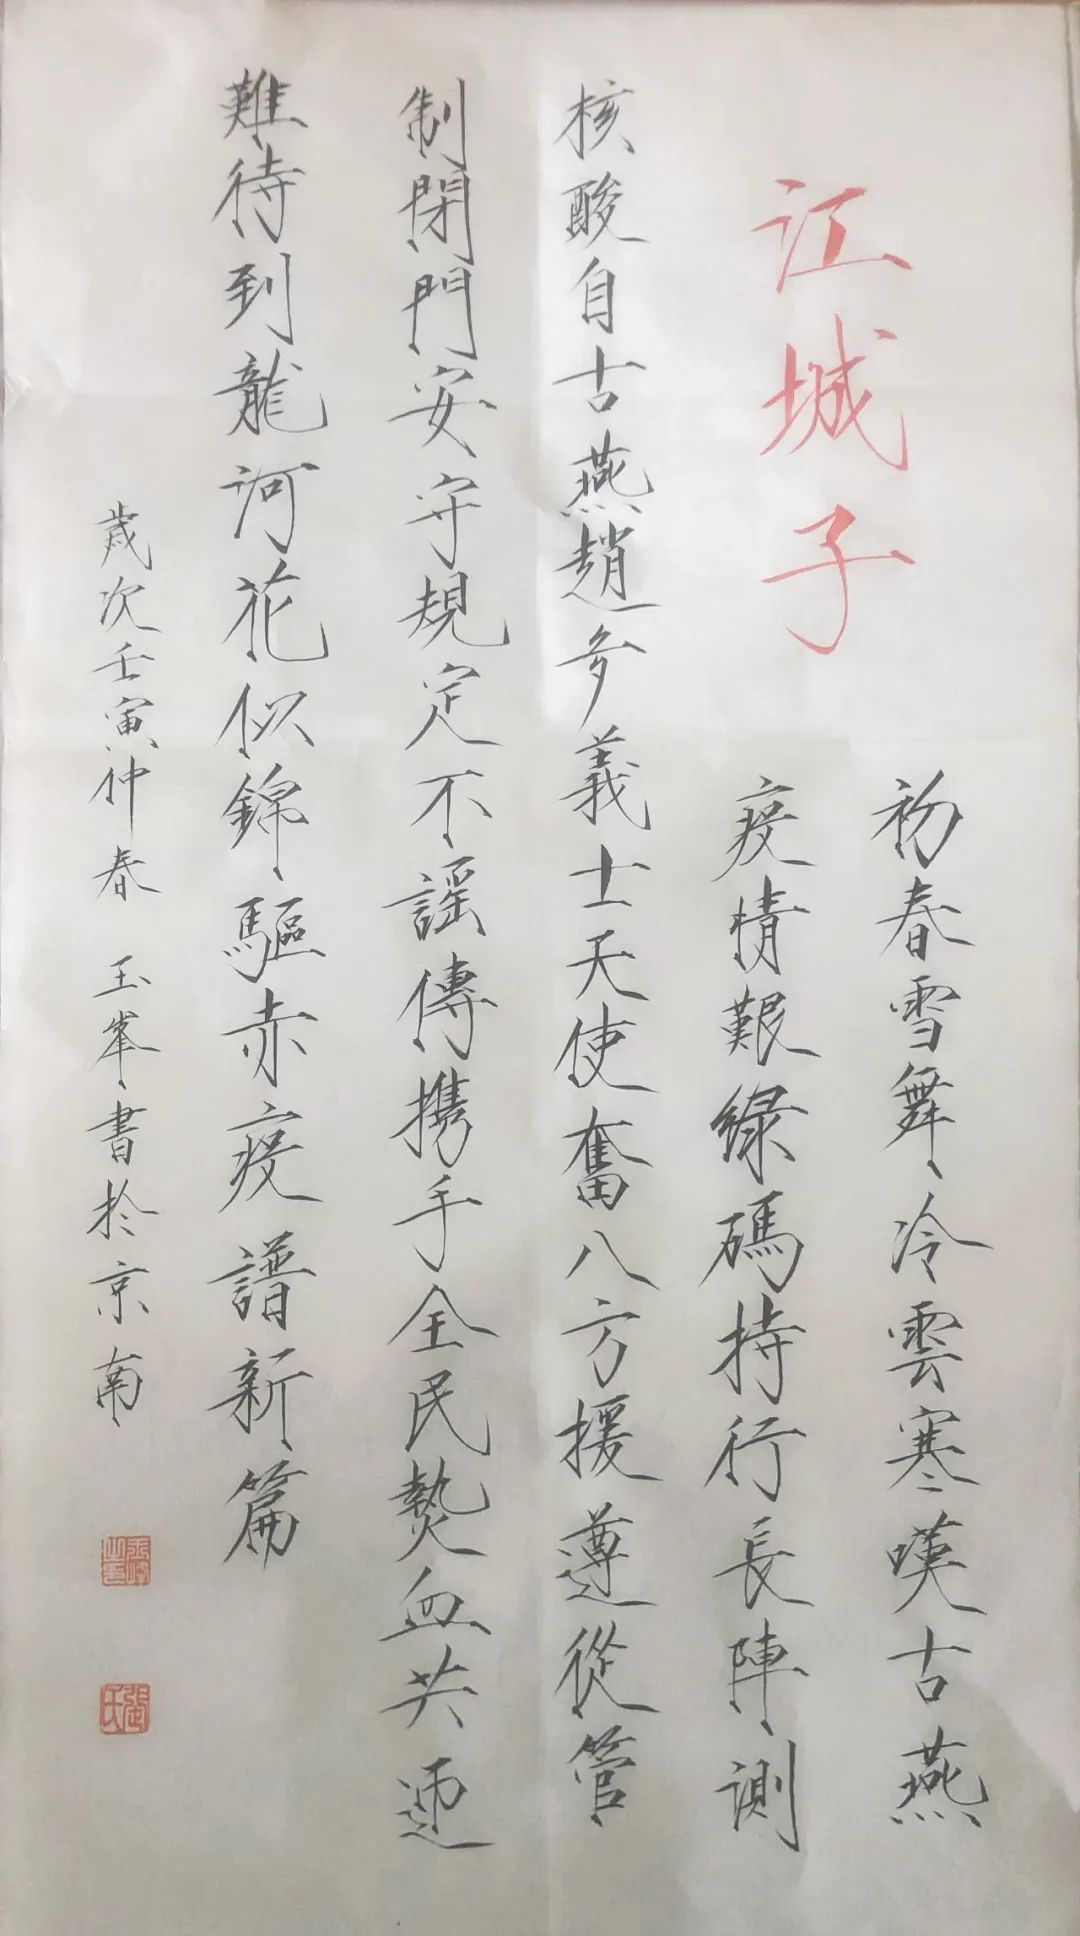 江城子
初春雪舞冷雲寒嘆古燕
疫情艱綠碼持行長陣測
核酸自古燕趙多義士天使奮八方援遵從管
制閉門安守規定不謠傳携手全民熱血共迎
難待到龍河花似錦驅赤疫譜新篇
歲次壬寅仲春 玉峯書於京南
玉峰之印
張氏